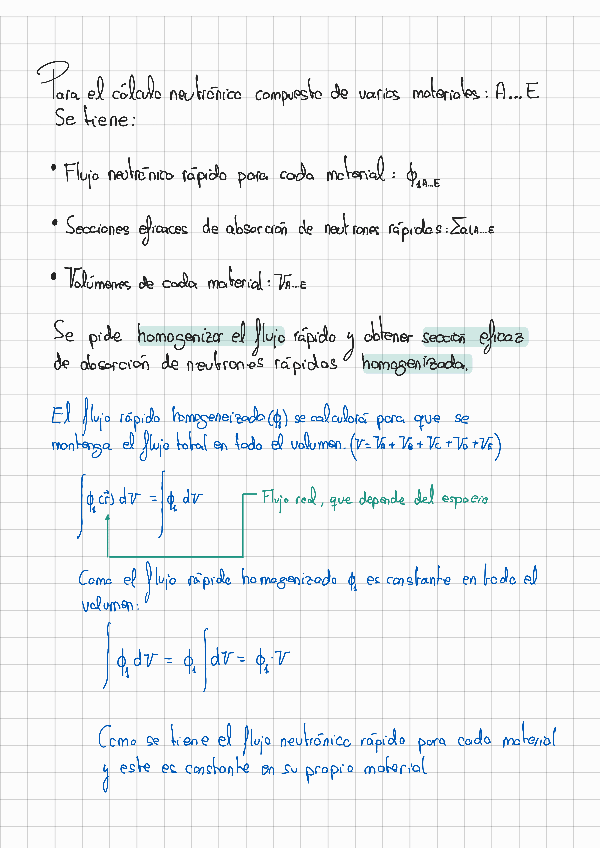 Para el cálculo neutrónico compuesto de varios materiales: A...E
Se tiene:
• Flujo neutrónico rápido para cada material: ϕ₁A...E
• Secciones eficaces de absorción de neutrones rápidos: Σa1A...E
• Volúmenes de cada material: VA...E
Se pide homogenizar el flujo rápido y obtener sección eficaz
de absorción de neutrones rápidos homogenizada.
El flujo rápido homogeneizado (ϕ₁) se calculará para que se
mantenga el flujo total en todo el volumen. (V = VA + VB + VC + VD + VE)
∫ ϕ₁(r⃗) dV = ∫ ϕ₁ dV
Flujo real, que depende del espacio
Como el flujo rápido homogenizado ϕ₁ es constante en todo el
volumen:
∫ ϕ₁ dV = ϕ₁ ∫ dV = ϕ₁ · V
Como se tiene el flujo neutrónico rápido para cada material
y este es constante en su propio material